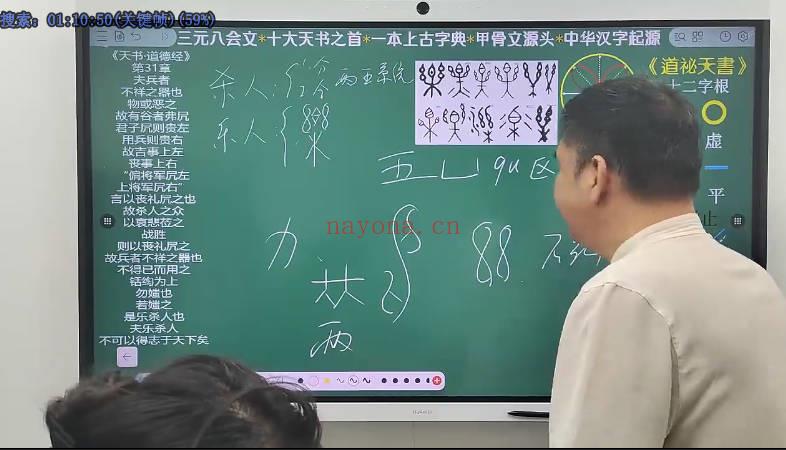 搜索: 01:10:50(关键帧)(59%)
三元八会文*十大天书之首*一本上古字典*甲骨文源头*中华汉字起源
《天书·道德经》
第31章
夫兵者
不祥之器也
物或恶之
故有谷者弗凥
君子凥则贵左
用兵则贵右
故吉事上左
丧事上右
“偏将军凥左
上将军凥右”
言以丧礼凥之也
故杀人之众
以哀悲莅之
战胜
则以丧礼凥之
故兵者不祥之器也
不得已而用之
铦纯为上
勿媸也
若媸之
是乐杀人也
夫乐杀人
不可以得志于天下矣
杀人:
乐人:
两亚系统
《道祕天書》
十二字根
虚
平
止
五
区
力
88
两
nayona.cn